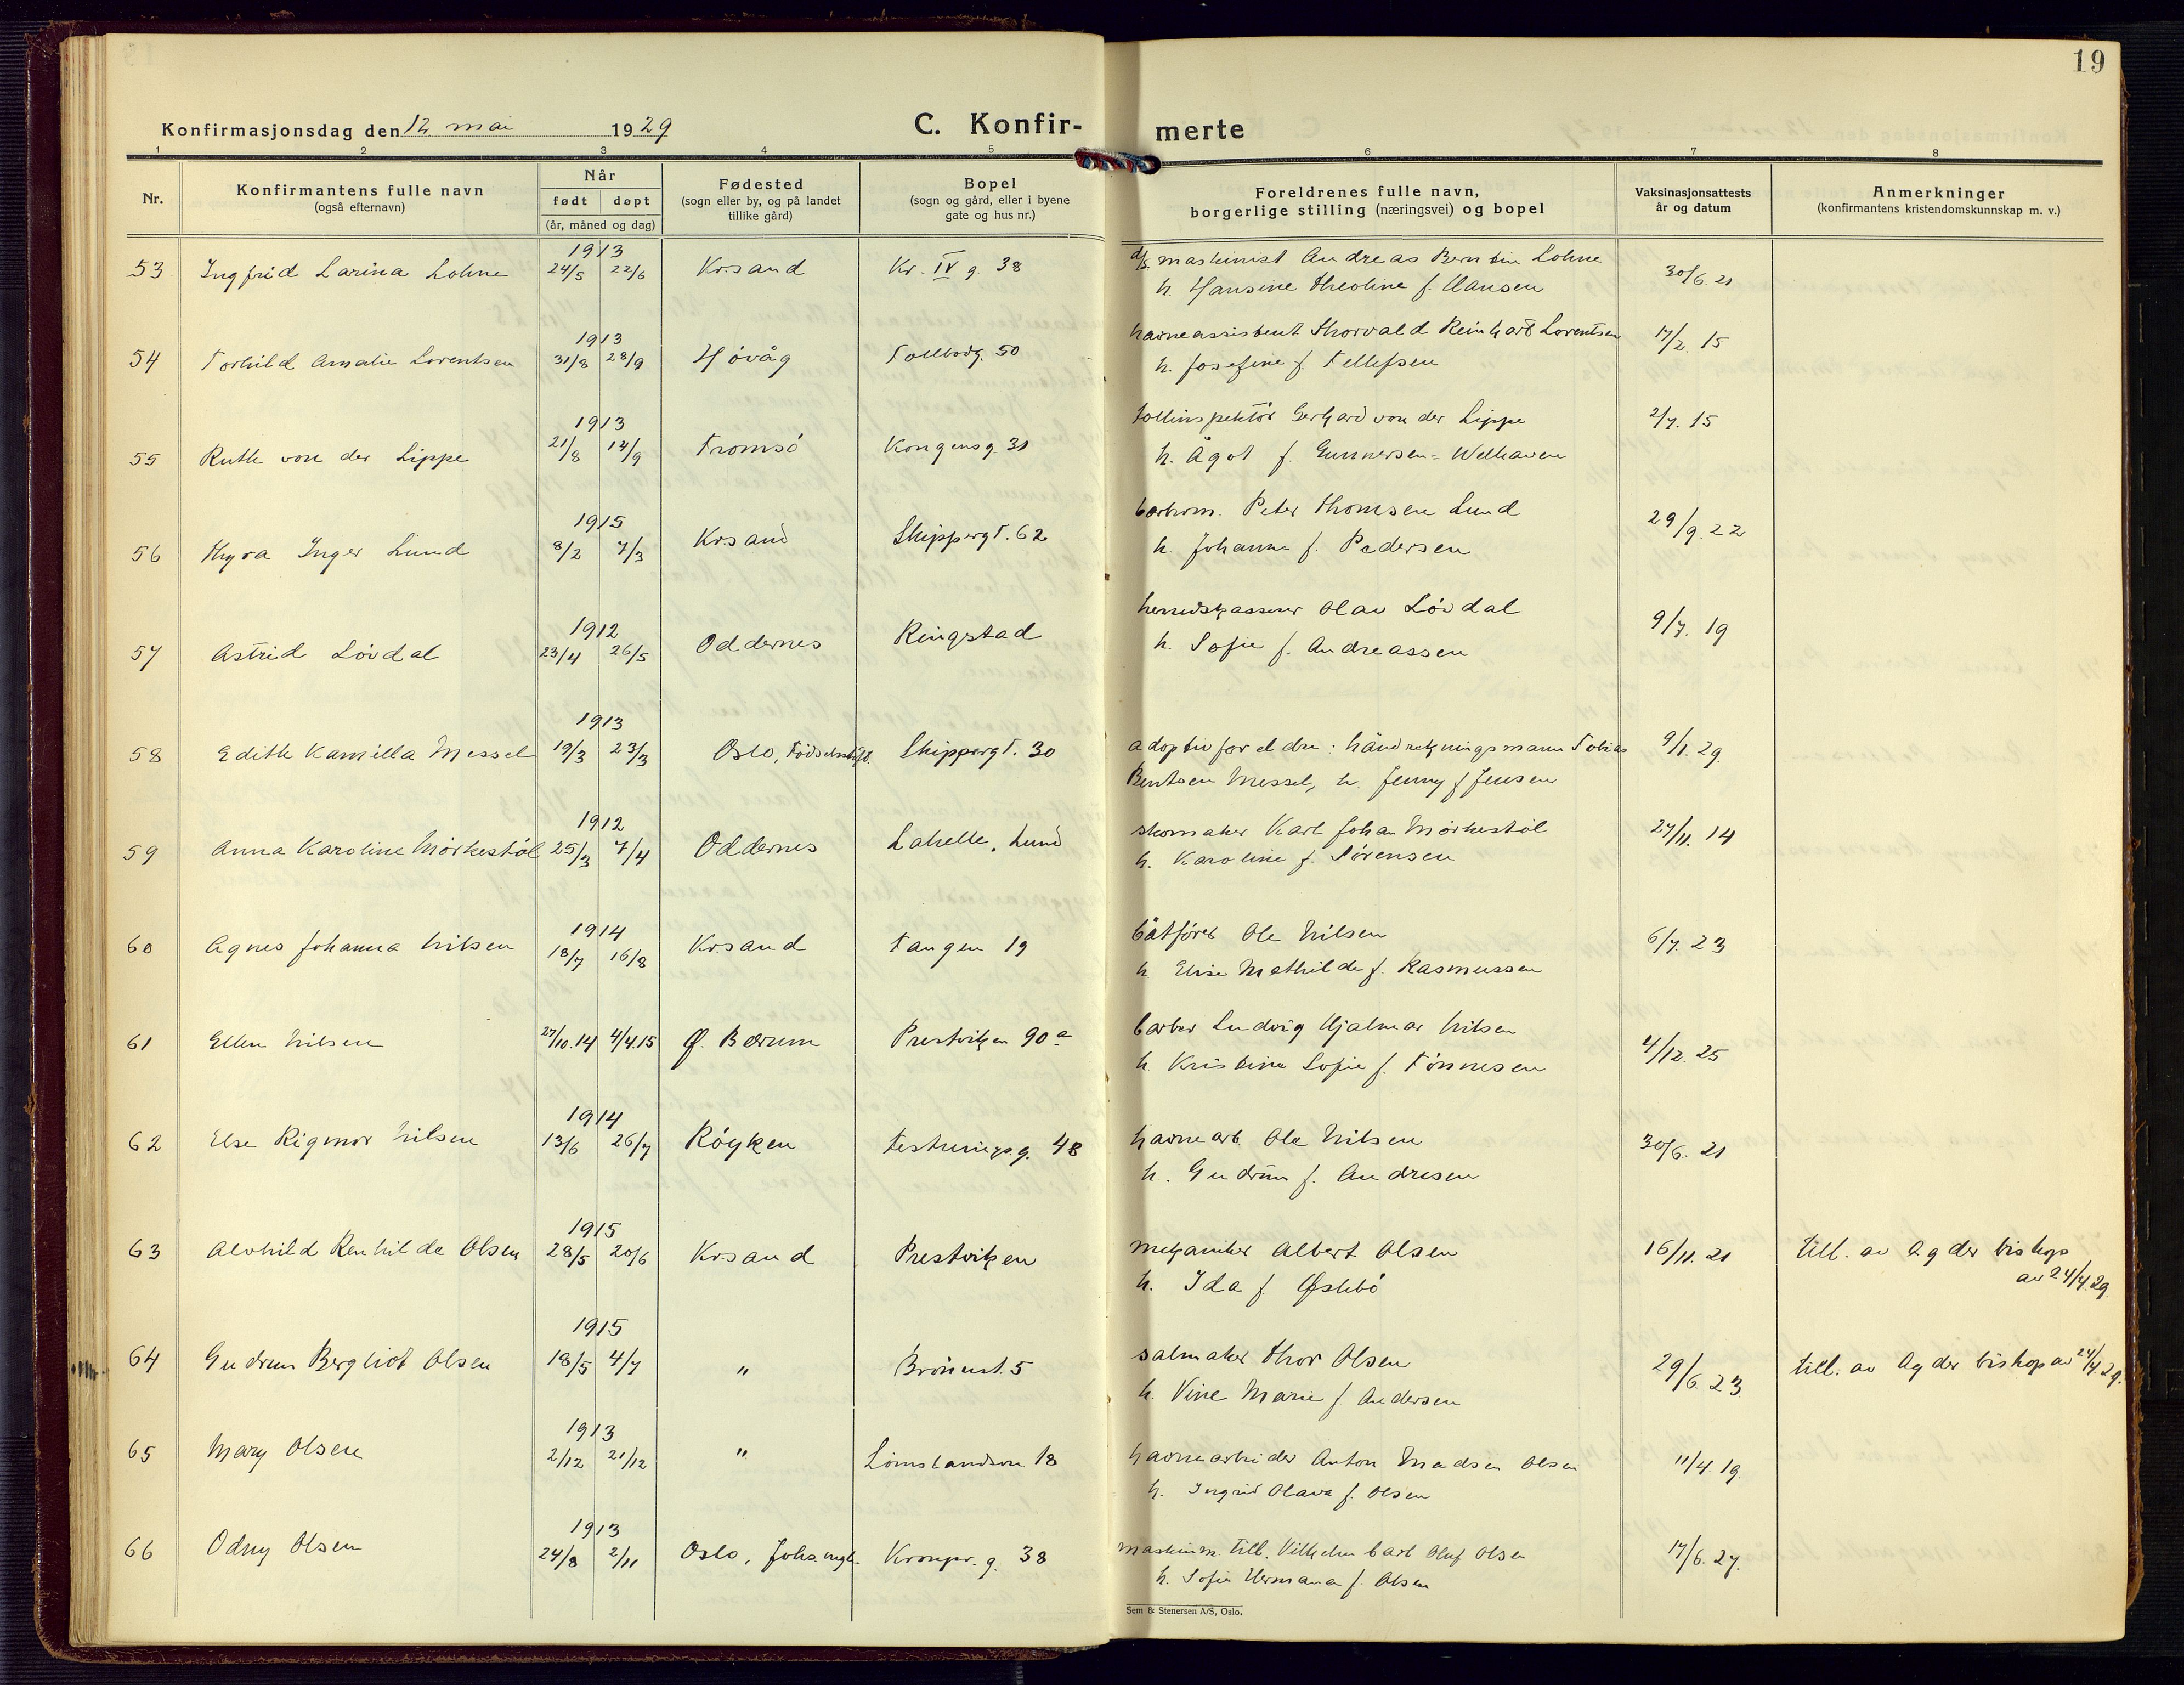 19
Konfirmasjonsdag den 12. mai 1929
C. Konfir-merte
1 2 3 4 5 6 7 8
Nr.
Konfirmantens fulle navn
(også efternavn)
Når
født døpt
(år, måned og dag)
Fødested
(sogn eller by, og på landet
tillike gård)
Bopel
(sogn og gård, eller i byene
gate og hus nr.)
Foreldrenes fulle navn,
borgerlige stilling (næringsvei) og bopel
Vaksinasjonsattests
år og datum
Anmerkninger
(konfirmantens kristendomskunnskap m. v.)
1913
53 Ingfrid Larina Lohne 24/5 22/6 Krsand Kr. IV g. 38 d/s. maskinist Andreas Bentin Lohne 30/6 21
h. Hansine Theoline f. Hansen
1913
54 Torhild Amalie Lorentsen 31/8 28/9 Høvåg Tollbodg. 50 havneassistent Thorvald Reinhart Lorentsen 17/2. 15
h. Josefine f. Tellefsen
1913
55 Ruth von der Lippe 21/8 14/9 Tromsø Kongensg. 31 tollinspektør Gerhard von der Lippe 2/7. 15
h. Ågot f. Gunnersen-Welhaven
1915
56 Thyra Inger Lund 8/2 7/3 Krsand Skippergt. 62 Peter Thomsen Lund 29/9. 22
h. Johanne f. Pedersen
1912
57 Astrid Løvdal 23/4 26/5 Oddernes Ringstad herredskasserer Olav Løvdal 9/7. 19
h. Sofie f. Andreassen
1913
58 Edith Kamilla Messel 19/3 23/3 Oslo, Fødselsstift. Skippergt. 30 adoptivforeldre: håndverkningsmann Tobias 9/1. 29
Bentsen Messel, h. Jenny f Jensen
1912
59 Anna Karoline Mørkestøl 25/3 7/4 Oddernes Lahelle, Lund skomaker Karl Johan Mørkestøl 27/11. 14
h. Karoline f. Sørensen
1914
60 Agnes Johanna Nilsen 18/7 16/8 Krsand Tangen 19 båtfører Ole Nilsen 6/7. 23
h. Elise Mathilde f. Rasmussen
61 Ellen Nilsen 27/10.14 4/4.15 Ø. Bærum Prestviken 90a barber Ludvig Hjalmar Nilsen 4/12. 25
h. Kristine Sofie f. Tønnesen
1914
62 Else Rigmor Nilsen 13/6 26/7 Røyken Festningsg. 48 havnearb. Ole Nilsen 30/6. 21
h. Gudrun f. Andresen
1915
63 Alvhild Renhilde Olsen 28/5 20/6 Krsand Prestviken mekaniker Albert Olsen 16/11. 21 till. av Agder biskop
h. Ida f Østebø av 24/4.29.
1915
64 Gudrun Bergliot Olsen 18/5 4/7 " Brönnst. 5 salmaker Thor Olsen 29/6. 23 till. av Agder biskop av 24/4.29.
h. Vine Marie f Andersen
1913
65 Mary Olsen 2/12 21/12 " 18 havnearbeider Anton Madsen Olsen 11/4. 19.
h. Ingrid Olava f. Olsen
1913
66 Odny Olsen 24/8 2/11 Oslo, Kronpr. g. 38 maskinm. till. Vilhelm Carl Oluf Olsen 17/6. 27.
h. Sofie Hermana f. Olsen
Sem & Stenersen A/S, Oslo.